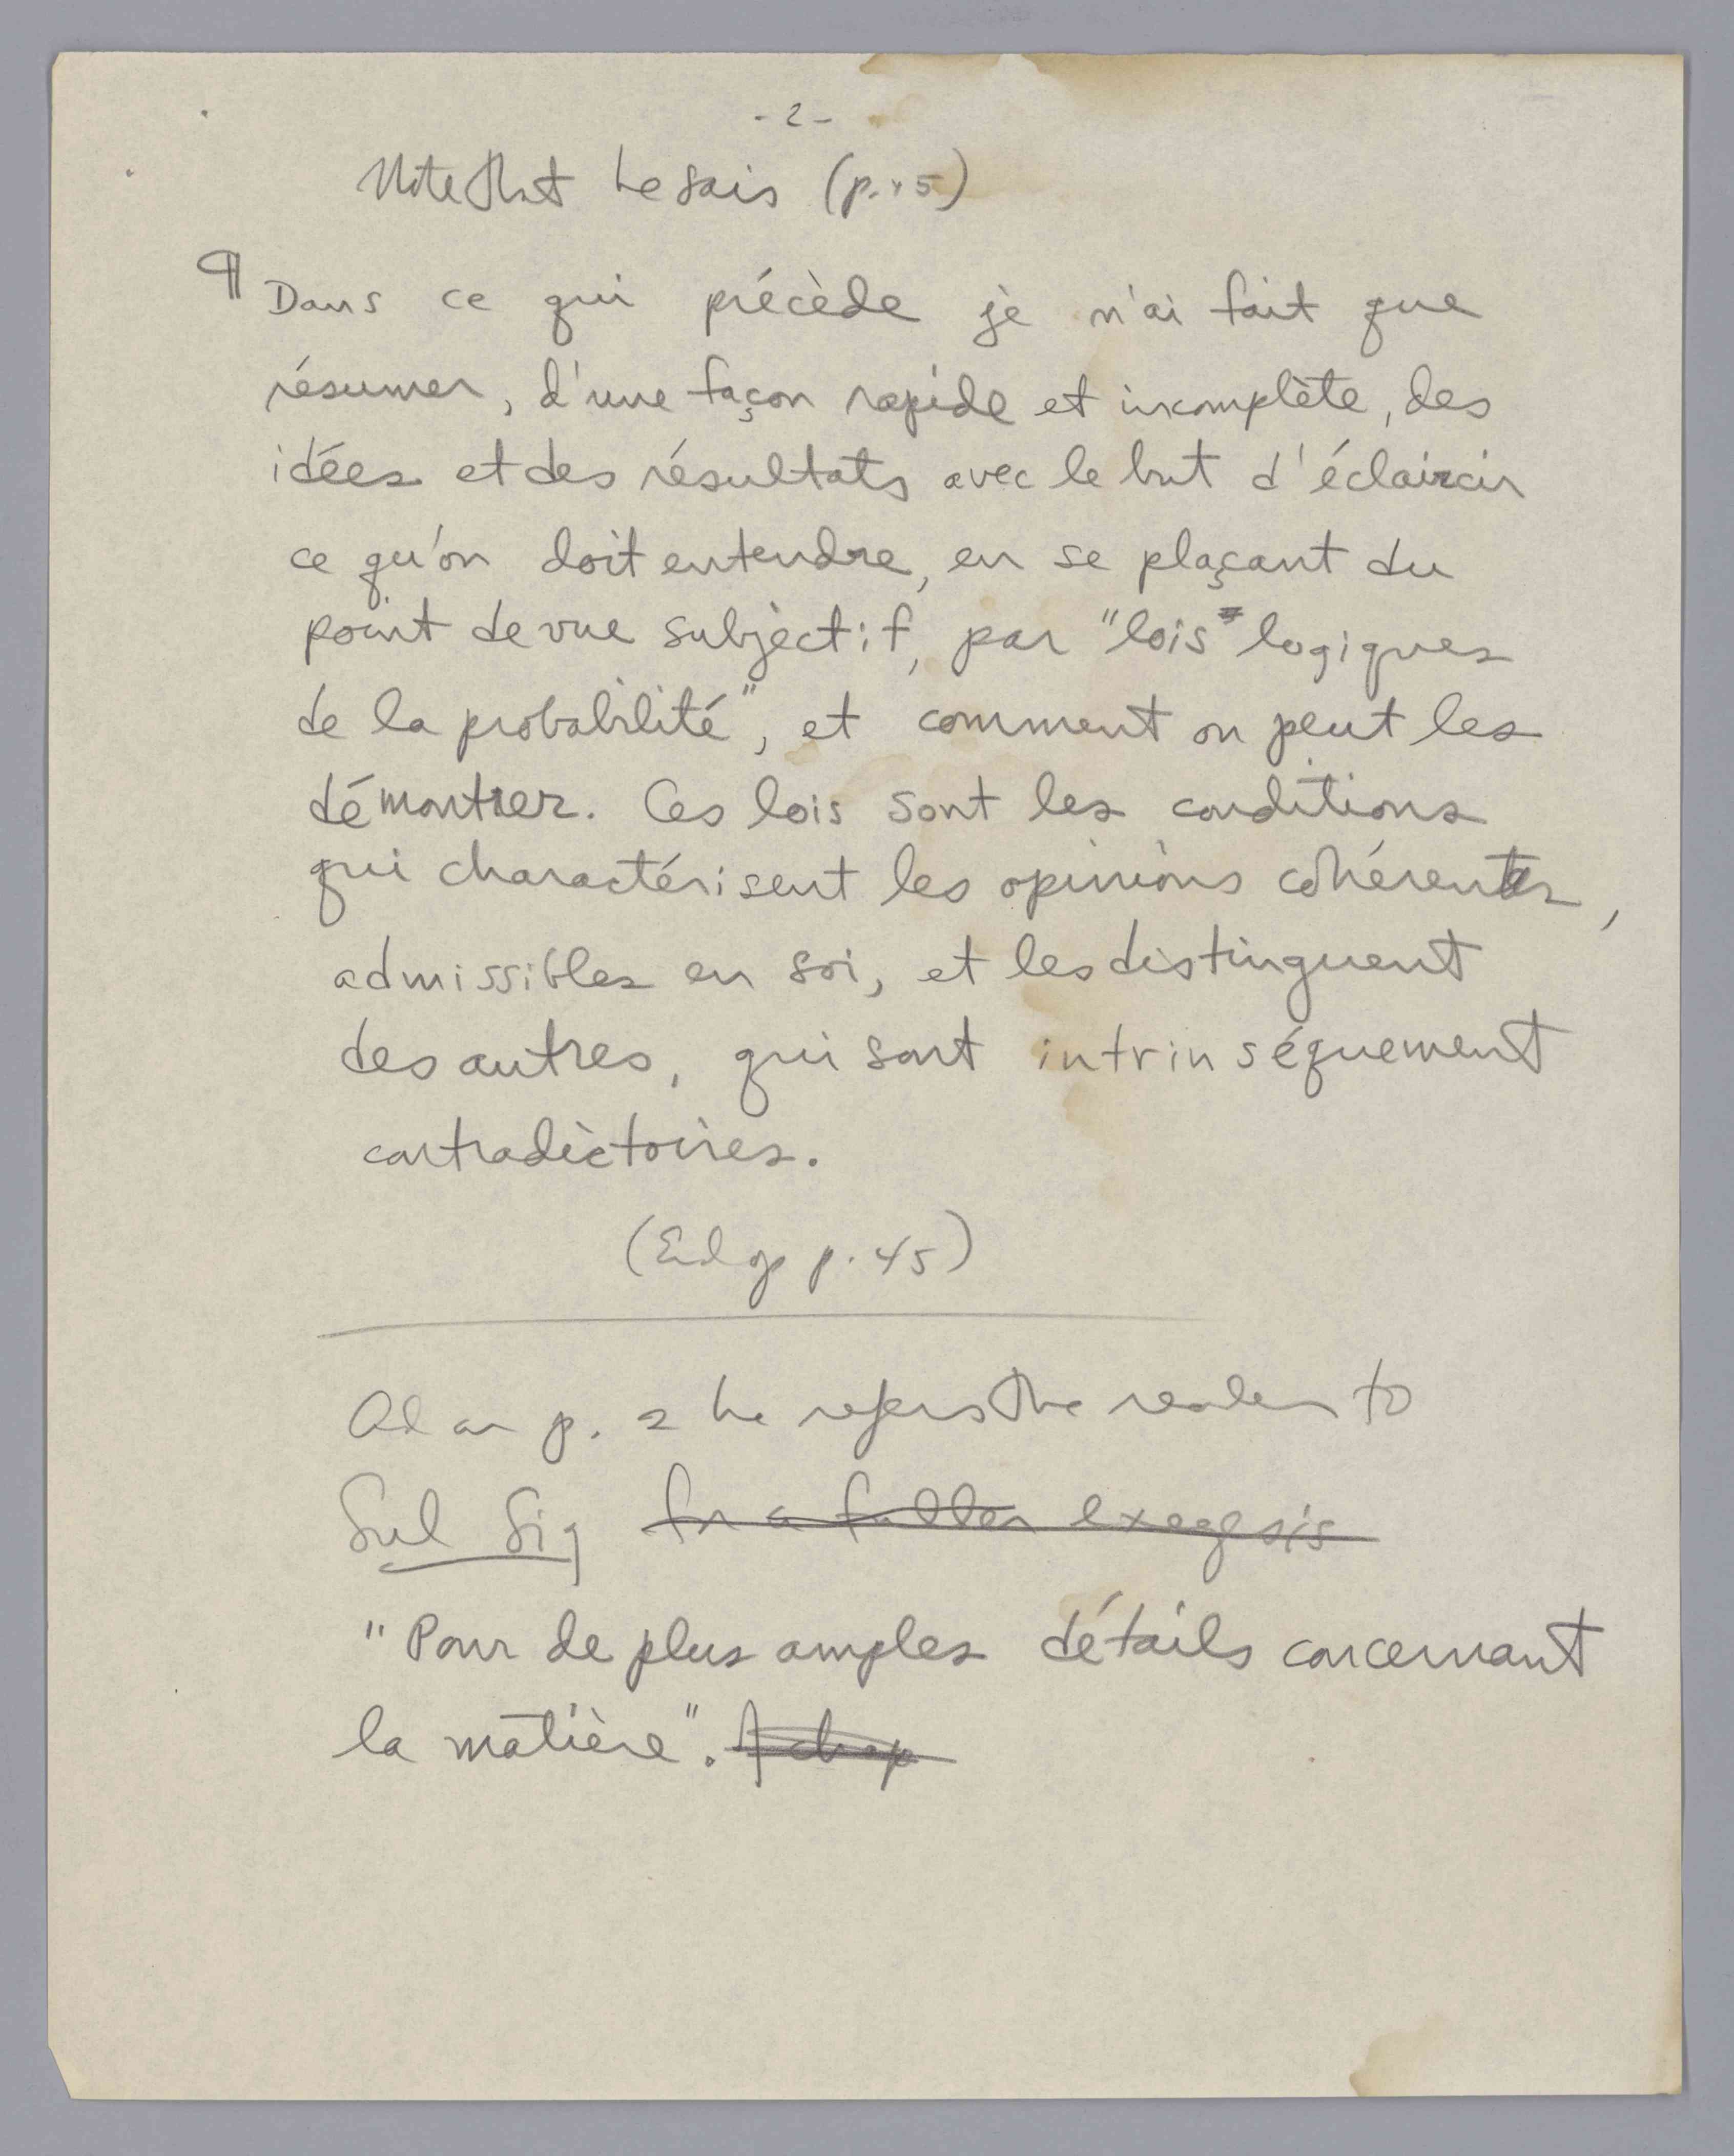 - 2 -
Note that he sais (p. 45)
¶ Dans ce qui précède je n'ai fait que
résumer, d'une façon rapide et incomplète, des
idées et des résultats avec le but d'éclaircir
ce qu'on doit entendre, en se plaçant du
point de vue subjectif, par "lois logiques
de la probabilité", et comment on peut les
démontrer. Ces lois sont les conditions
qui charactérisent les opinions cohérentes,
admissibles en soi, et les distinguent
des autres, qui sont intrinséquement
contradictoires.
(End of p. 45)
And on p. 2 he refers the reader to
Sul Sig for a fuller exegesis
"Pour de plus amples détails concernant
la matière". chap